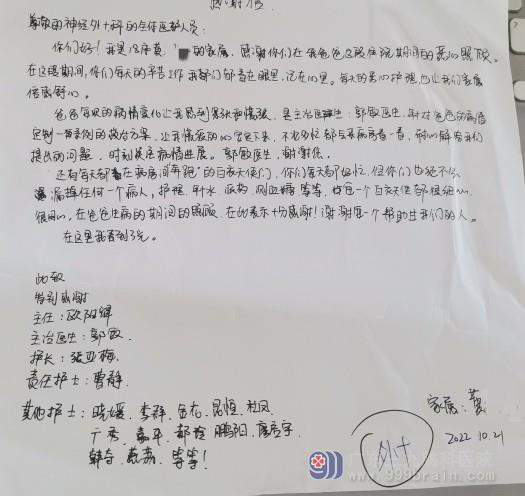 感谢信
尊敬的神经外十科的全体医护人员:
你们好!我是18床黄 的家属,感谢你们在我爸爸这段住院期间的悉心照顾。
在这段期间,你们每天的辛苦工作我们都看在眼里,记在心里。每天的悉心护理,也让我们家属
倍感舒心。
爸爸每次的病情变化让我感到紧张和慌张,是主治医生:郭敏医生,针对爸爸的病情
定制一系列的救治方案,让我慌张的心安下来,不论多忙都会来病房看一看,耐心解答我们
提出的问题,时刻关注病情进展。郭敏医生,谢谢您。
还有每天都在病房间“奔跑”的白衣天使们,你们每天都好忙,但你们也绝不会
漏掉任何一个病人,护理、补水、吸药、测血糖等等,你每一个白衣天使都很细心,
很用心,在爸爸生病的期间的照顾,在此表示十分感谢!谢谢每一个帮助过我们的人。
在这里我看到了光。
此致
特别感谢
主任:欧阳辉
主治医生:郭敏
护长:张亚梅
责任护士:曹静
其他护士:晓媛、李群、金花、昆恒、杜凤
广秀、嘉平、郁檀、鹏阳、唐彦宇
韩奇、燕燕、等等!
家属:黄
2022.10.21
外十
www.999brain.com